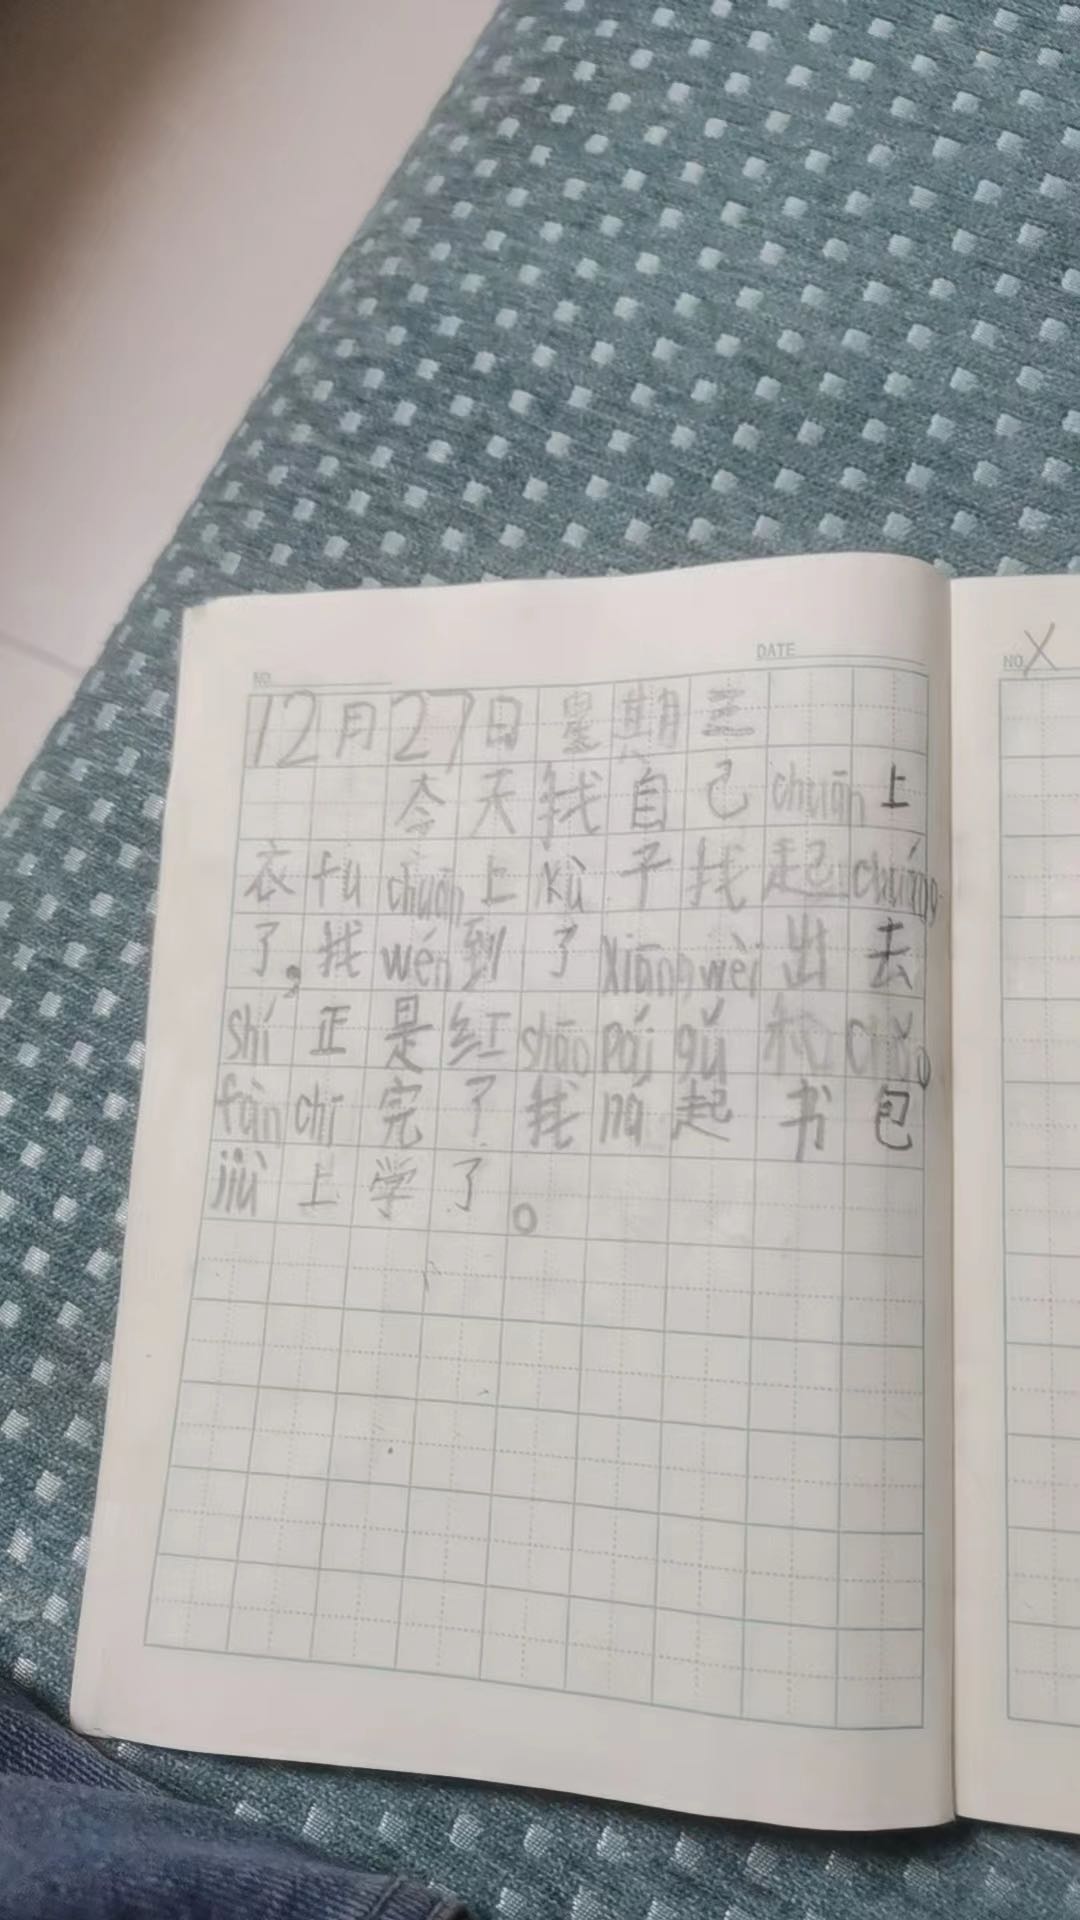 NO.
DATE
12月27日星期三
今天找自己chuān上
衣fu chuān上kù子找起chuáng
了,找wén到了xiāng wèi出去
shí正是红shāo pái gǔ和chǎo
fàn chī完了找ná起书包
jiù上学了。
NO. X